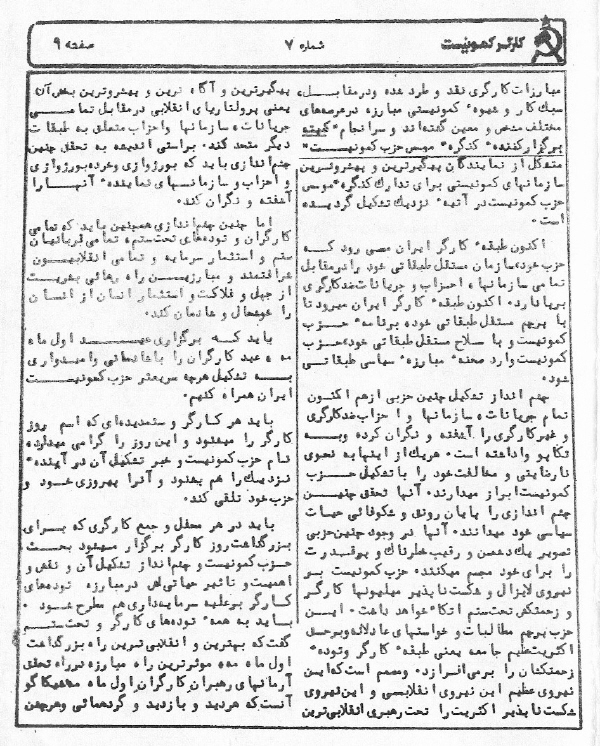 کارگر کمونیست
شماره ۷
صفحه ۹
مبارزات کارگری نقد و طرد شده و در مقابل،
سبک کار و شیوهٔ کمونیستی مبارزه در عرصه‌های
مختلف مشخص و معین گشته‌اند و سرانجام "کمیته
برگزار کننده" کنگرهٔ مؤسس حزب کمونیست"
متشکل از نمایندگان پیگیرترین و پیشروترین
سازمانهای کمونیستی برای تدارک کنگرهٔ مؤسس
حزب کمونیست در آتیهٔ نزدیک تشکیل گردیده
است.
اکنون طبقهٔ کارگر ایران می رود که
حزب خود، سازمان مستقل طبقاتی خود را در مقابل
تمامی سازمانها، احزاب و جریانات ضدکارگری
برپا دارد. اکنون طبقهٔ کارگر ایران میرود تا
با پرچم مستقل طبقاتی خود، برنامهٔ حزب
کمونیست و با سلاح مستقل طبقاتی خود، حزب
کمونیست وارد صحنهٔ مبارزهٔ سیاسی طبقاتی
شود.
چشم انداز تشکیل چنین حزبی از هم اکنون
تمام جریانات، سازمانها و احزاب ضدکارگری
و غیرکارگری را آشفته و نگران کرده و به
تکاپو واداشته است. هریک از اینها به نحوی
نارضایتی و مخالفت خود را با تشکیل حزب
کمونیست ابراز میدارند. آنها تحقق چنین
چشم اندازی را پایان رونق و شکوفائی حیات
سیاسی خود میدانند. آنها در وجود چنین حزبی
تصویر یک دشمن و رقیب خطرناک و پرقدرت
را برای خود مجسم میکنند. حزب کمونیست بر
نیروی لایزال و شکست ناپذیر میلیونها کارگر
و زحمتکش تحت ستم اتکاء خواهد داشت. این
حزب پرچم مطالبات و خواستهای عادلانه و برحق
اکثریت عظیم جامعه یعنی طبقهٔ کارگر و تودهٔ
زحمتکشان را برمی افرازد. و مصمم است که این
نیروی عظیم این نیروی انقلابی و این نیروی
شکست ناپذیر اکثریت را تحت رهبری انقلابی‌ترین
پیگیرترین و آگاه ترین و پیشروترین بخش آن
یعنی پرولتاریای انقلابی در مقابل تمامی
جریانات، سازمانها و احزاب متعلق به طبقات
دیگر متحد کند. براستی اندیشه به تحقق چنین
چشم اندازی باید که بورژوازی و خرده بورژوازی
و احزاب و سازمانهای نمایندهٔ آنها را
آشفته و نگران کند.
اما چنین چشم اندازی همچنین باید که تمامی
کارگران و توده‌های تحت‌ستم، تمامی قربانیان
ستم و استثمار سرمایه و تمامی انقلابیون
شرافتمند و مبارزین راه رهائی بشریت
از جهل و فلاکت و استثمار انسان از انسان
را خوشحال و شادمان کند.
باید که برگزاری عید اول ماه
مه، عید کارگران را با شادمانی و امیدواری
به تشکیل هرچه سریعتر حزب کمونیست
ایران همراه کنیم.
باید هر کارگر و ستمدیده‌ای که اسم روز
کارگر را میشنود و این روز را گرامی میدارد،
نام حزب کمونیست و خبر تشکیل آن در آیندهٔ
نزدیک را هم بشنود و آنرا پیروزی خود و
حزب خود تلقی کند.
باید در هر محفل و جمع کارگری که برای
بزرگداشت روز کارگر برگزار میشود بحث
حزب کمونیست و چشم انداز تشکیل آن و نقش و
اهمیت و تاثیر حیاتی‌اش در مبارزه توده‌های
کارگر برعلیه سرمایه‌داری هم مطرح شود.
باید به همهٔ توده‌های کارگر و تحت‌ستم
گفت که بهترین و انقلابی‌ترین راه بزرگداشت
اول ماه مه، مؤثرترین راه مبارزه در راه تحقق
آرمانهای رهبران کارگران اول ماه مه شیکاگو
آنست که هر دید و بازدید و گردهمائی و هر جشن